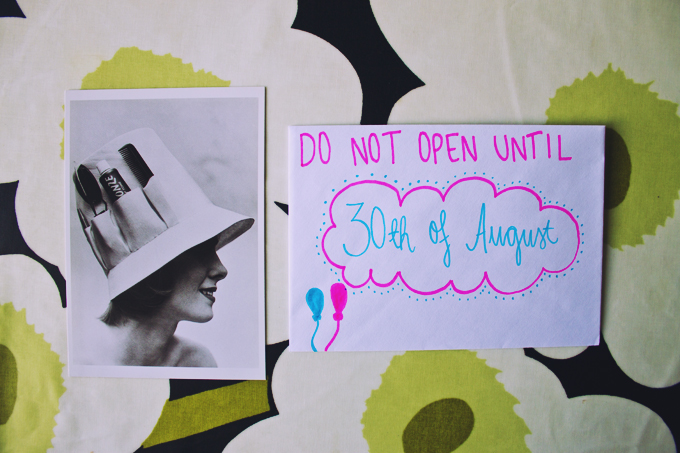 DO NOT OPEN UNTIL
30th of August